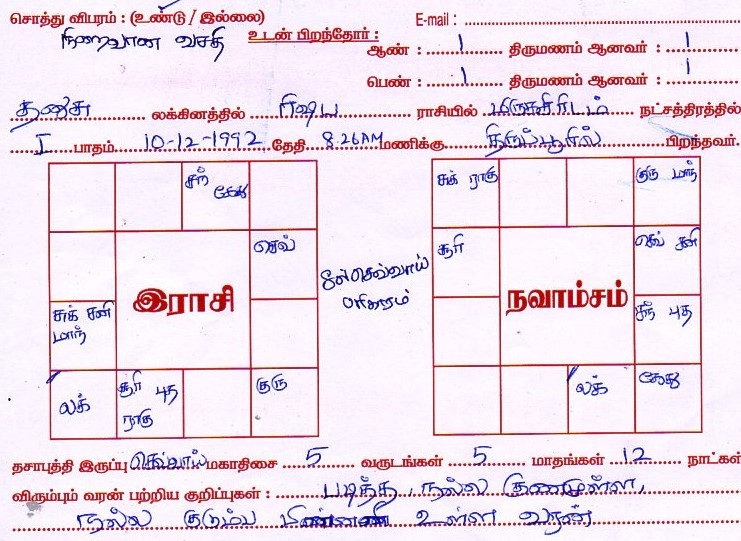 சொத்து விபரம் : (உண்டு / இல்லை) E-mail :
நிறைவான வசதி உடன் பிறந்தோர் :
ஆண் : 1 திருமணம் ஆனவர் : 1
பெண் : 1 திருமணம் ஆனவர் : 1
தனுசு லக்கினத்தில் ரிஷப ராசியில் மிருகசீரிடம் நட்சத்திரத்தில்
I பாதம் 10-12-1992 தேதி 8.26AM மணிக்கு திருப்பூரில் பிறந்தவர்.
சந் கேது
செவ்
இராசி
சுக் சனி
மாந்
லக்
சூரி புத
ராகு
குரு
8ல் செவ்வாய்
பரிகாரம்
சுக் ராகு
குரு மாந்
சூரி
செவ் சனி
நவாம்சம்
சந் புத
லக்
கேது
தசாபுத்தி இருப்பு செவ்வாய் மகாதிசை 5 வருடங்கள் 5 மாதங்கள் 12 நாட்கள்
விரும்பும் வரன் பற்றிய குறிப்புகள் : படித்த, நல்ல குணமுள்ள,
நல்ல குடும்ப பின்னணி உள்ள வரன்